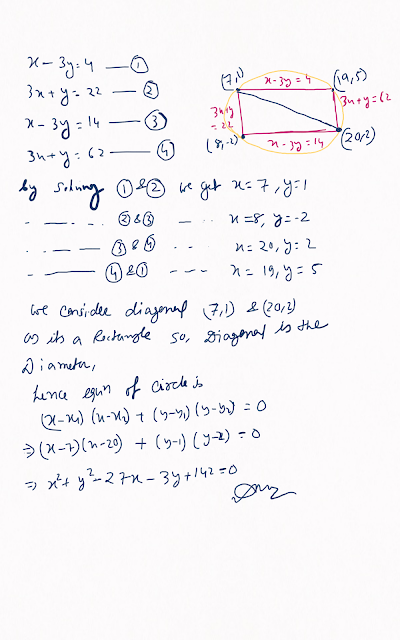 x - 3y = 4 —— ①
3x + y = 22 —— ②
x - 3y = 14 —— ③
3x + y = 62 —— ④
(7,1)
x-3y=4
(19,5)
3x+y=62
3x+y
=22
(8,-2)
x-3y=14
(20,2)
by solving ① & ② we get x = 7, y = 1
- —— - ② & ③ - ... x = 8, y = -2
.. —— - ③ & ④ .. .. x = 20, y = 2
- —— ④ & ① - - - x = 19, y = 5
we consider diagonal (7,1) & (20,2)
as its a Rectangle so, Diagonal is the
Diameter,
hence eqn of circle is
(x-x₁)(x-x₂) + (y-y₁)(y-y₂) = 0
⇒ (x-7)(x-20) + (y-1)(y-2) = 0
⇒ x² + y² - 27x - 3y + 142 = 0
Ans